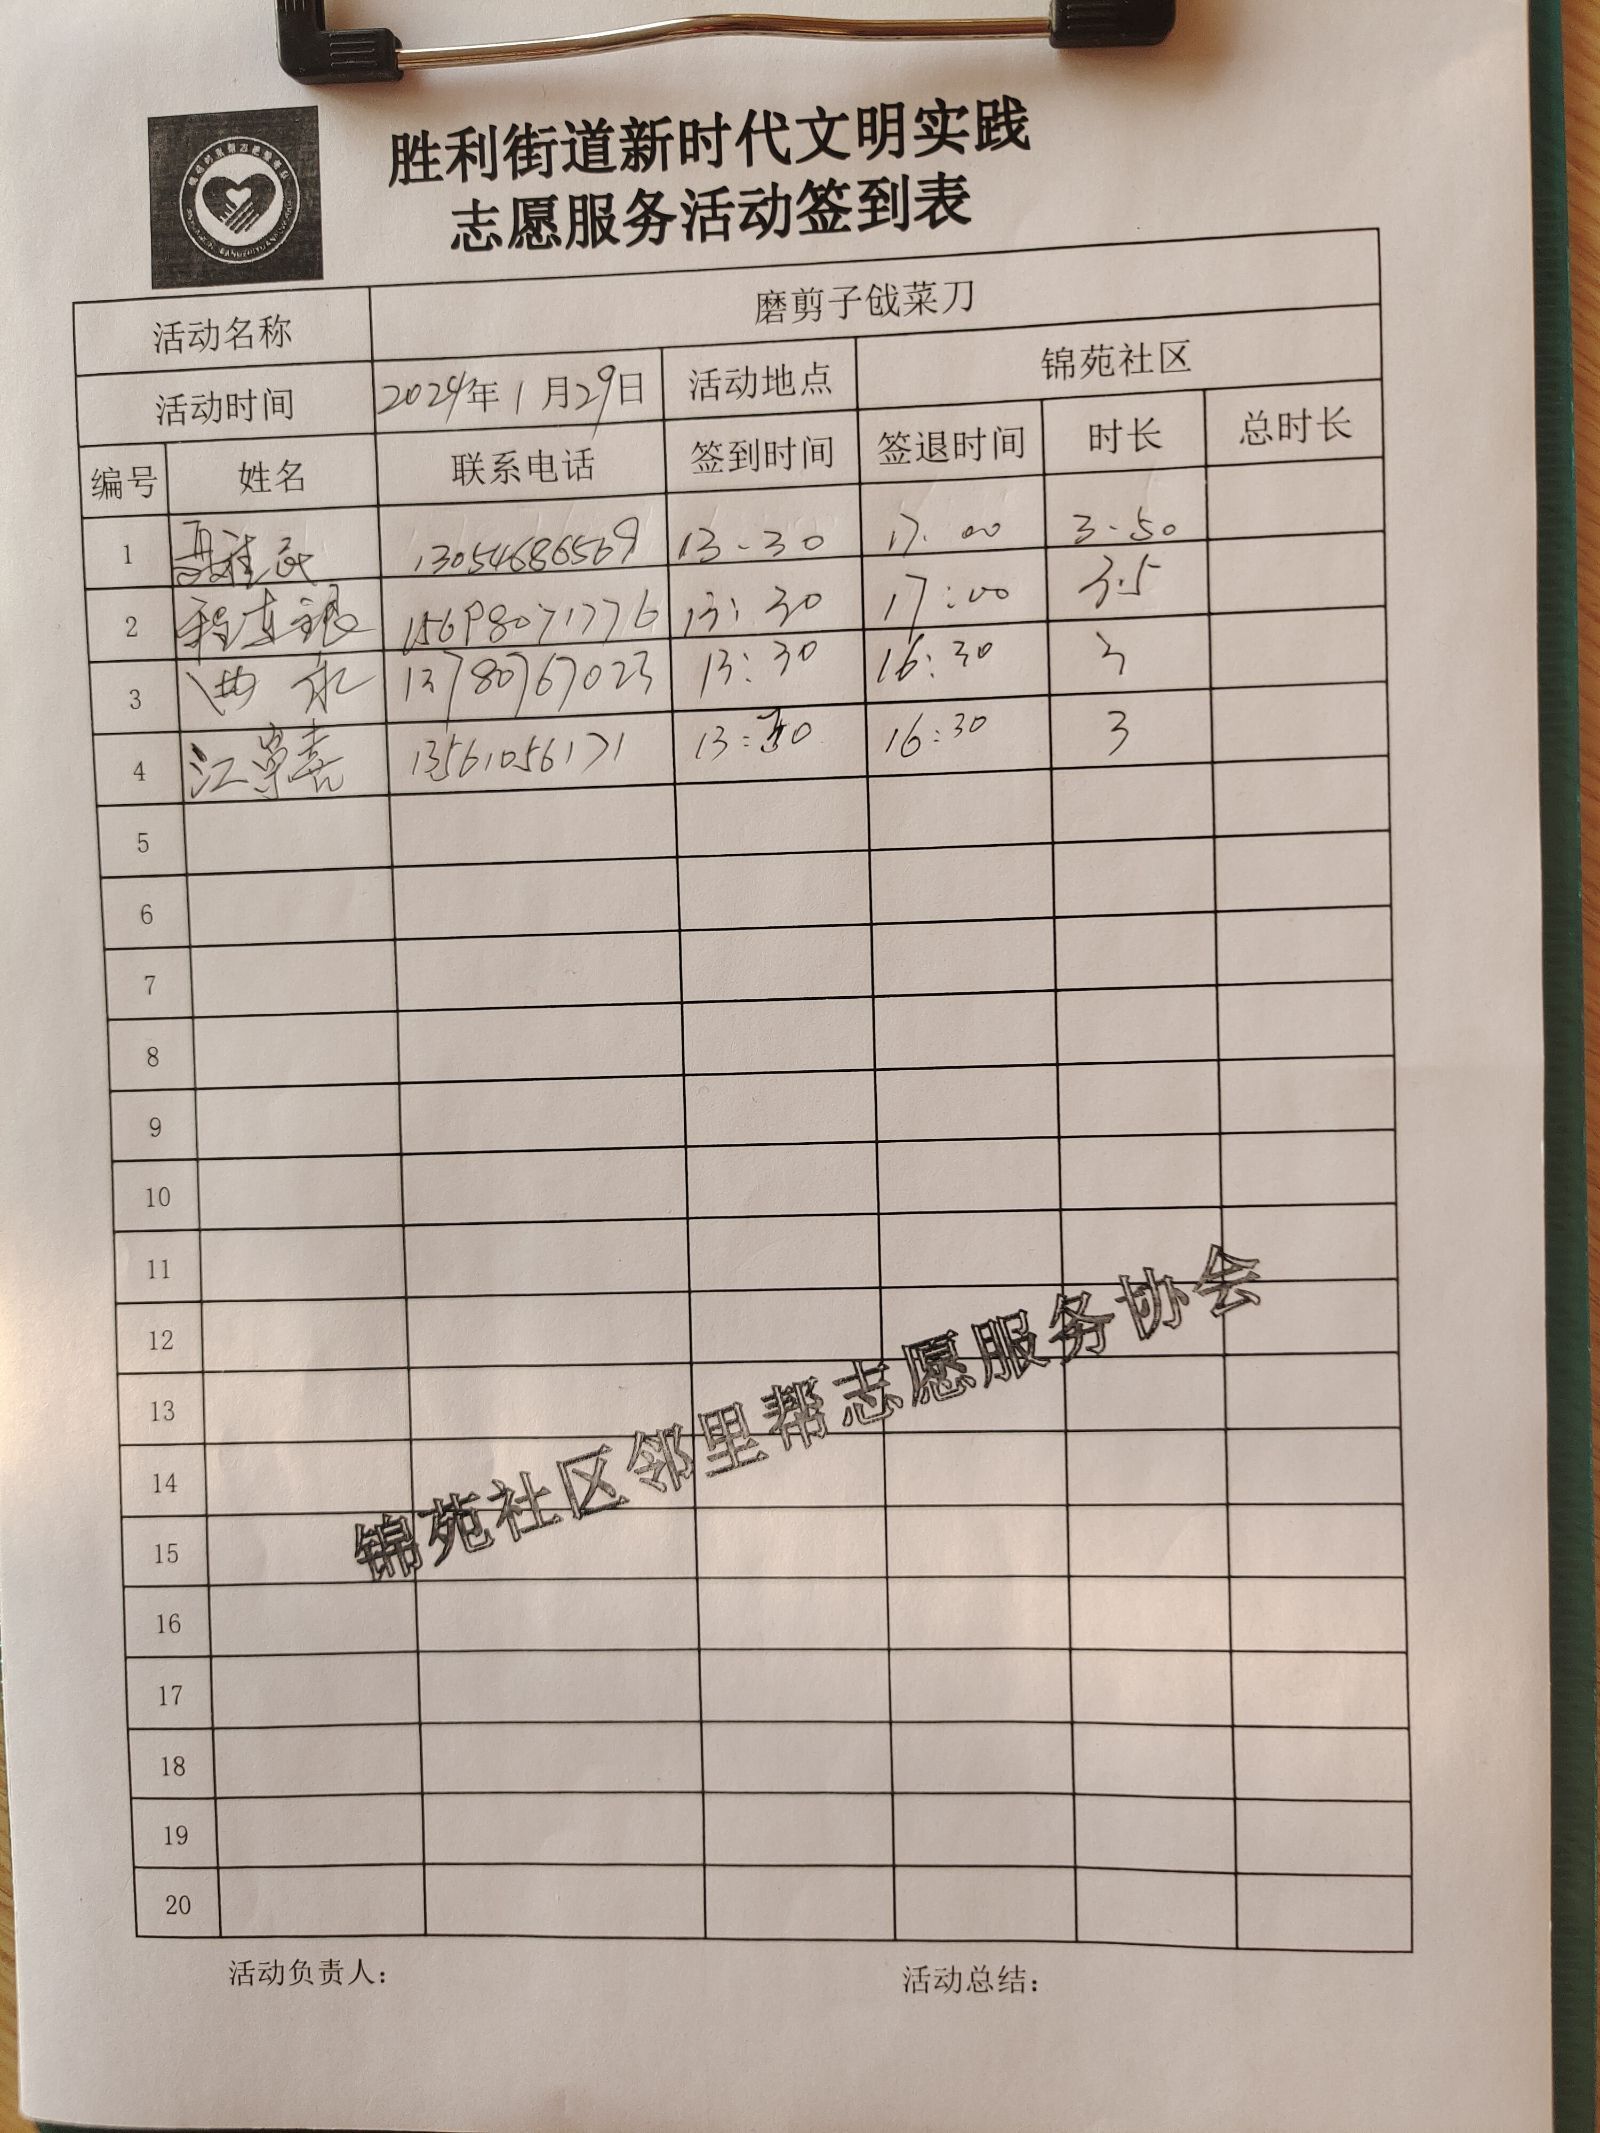 胜利街道新时代文明实践
志愿服务活动签到表
活动名称 磨剪子戗菜刀
活动时间 2024年1月29日 活动地点 锦苑社区
编号 姓名 联系电话 签到时间 签退时间 时长 总时长
1 13054686569 13-30 17:00 3-50
2 15698071776 13:30 17:00 3.5
3 13780767023 13:30 16:30 3
4 江 喜 13561056171 13:30 16:30 3
5
6
7
8
9
10
11
12
13
14
15
16
17
18
19
20
锦苑社区邻里帮志愿服务协会
活动负责人： 活动总结：